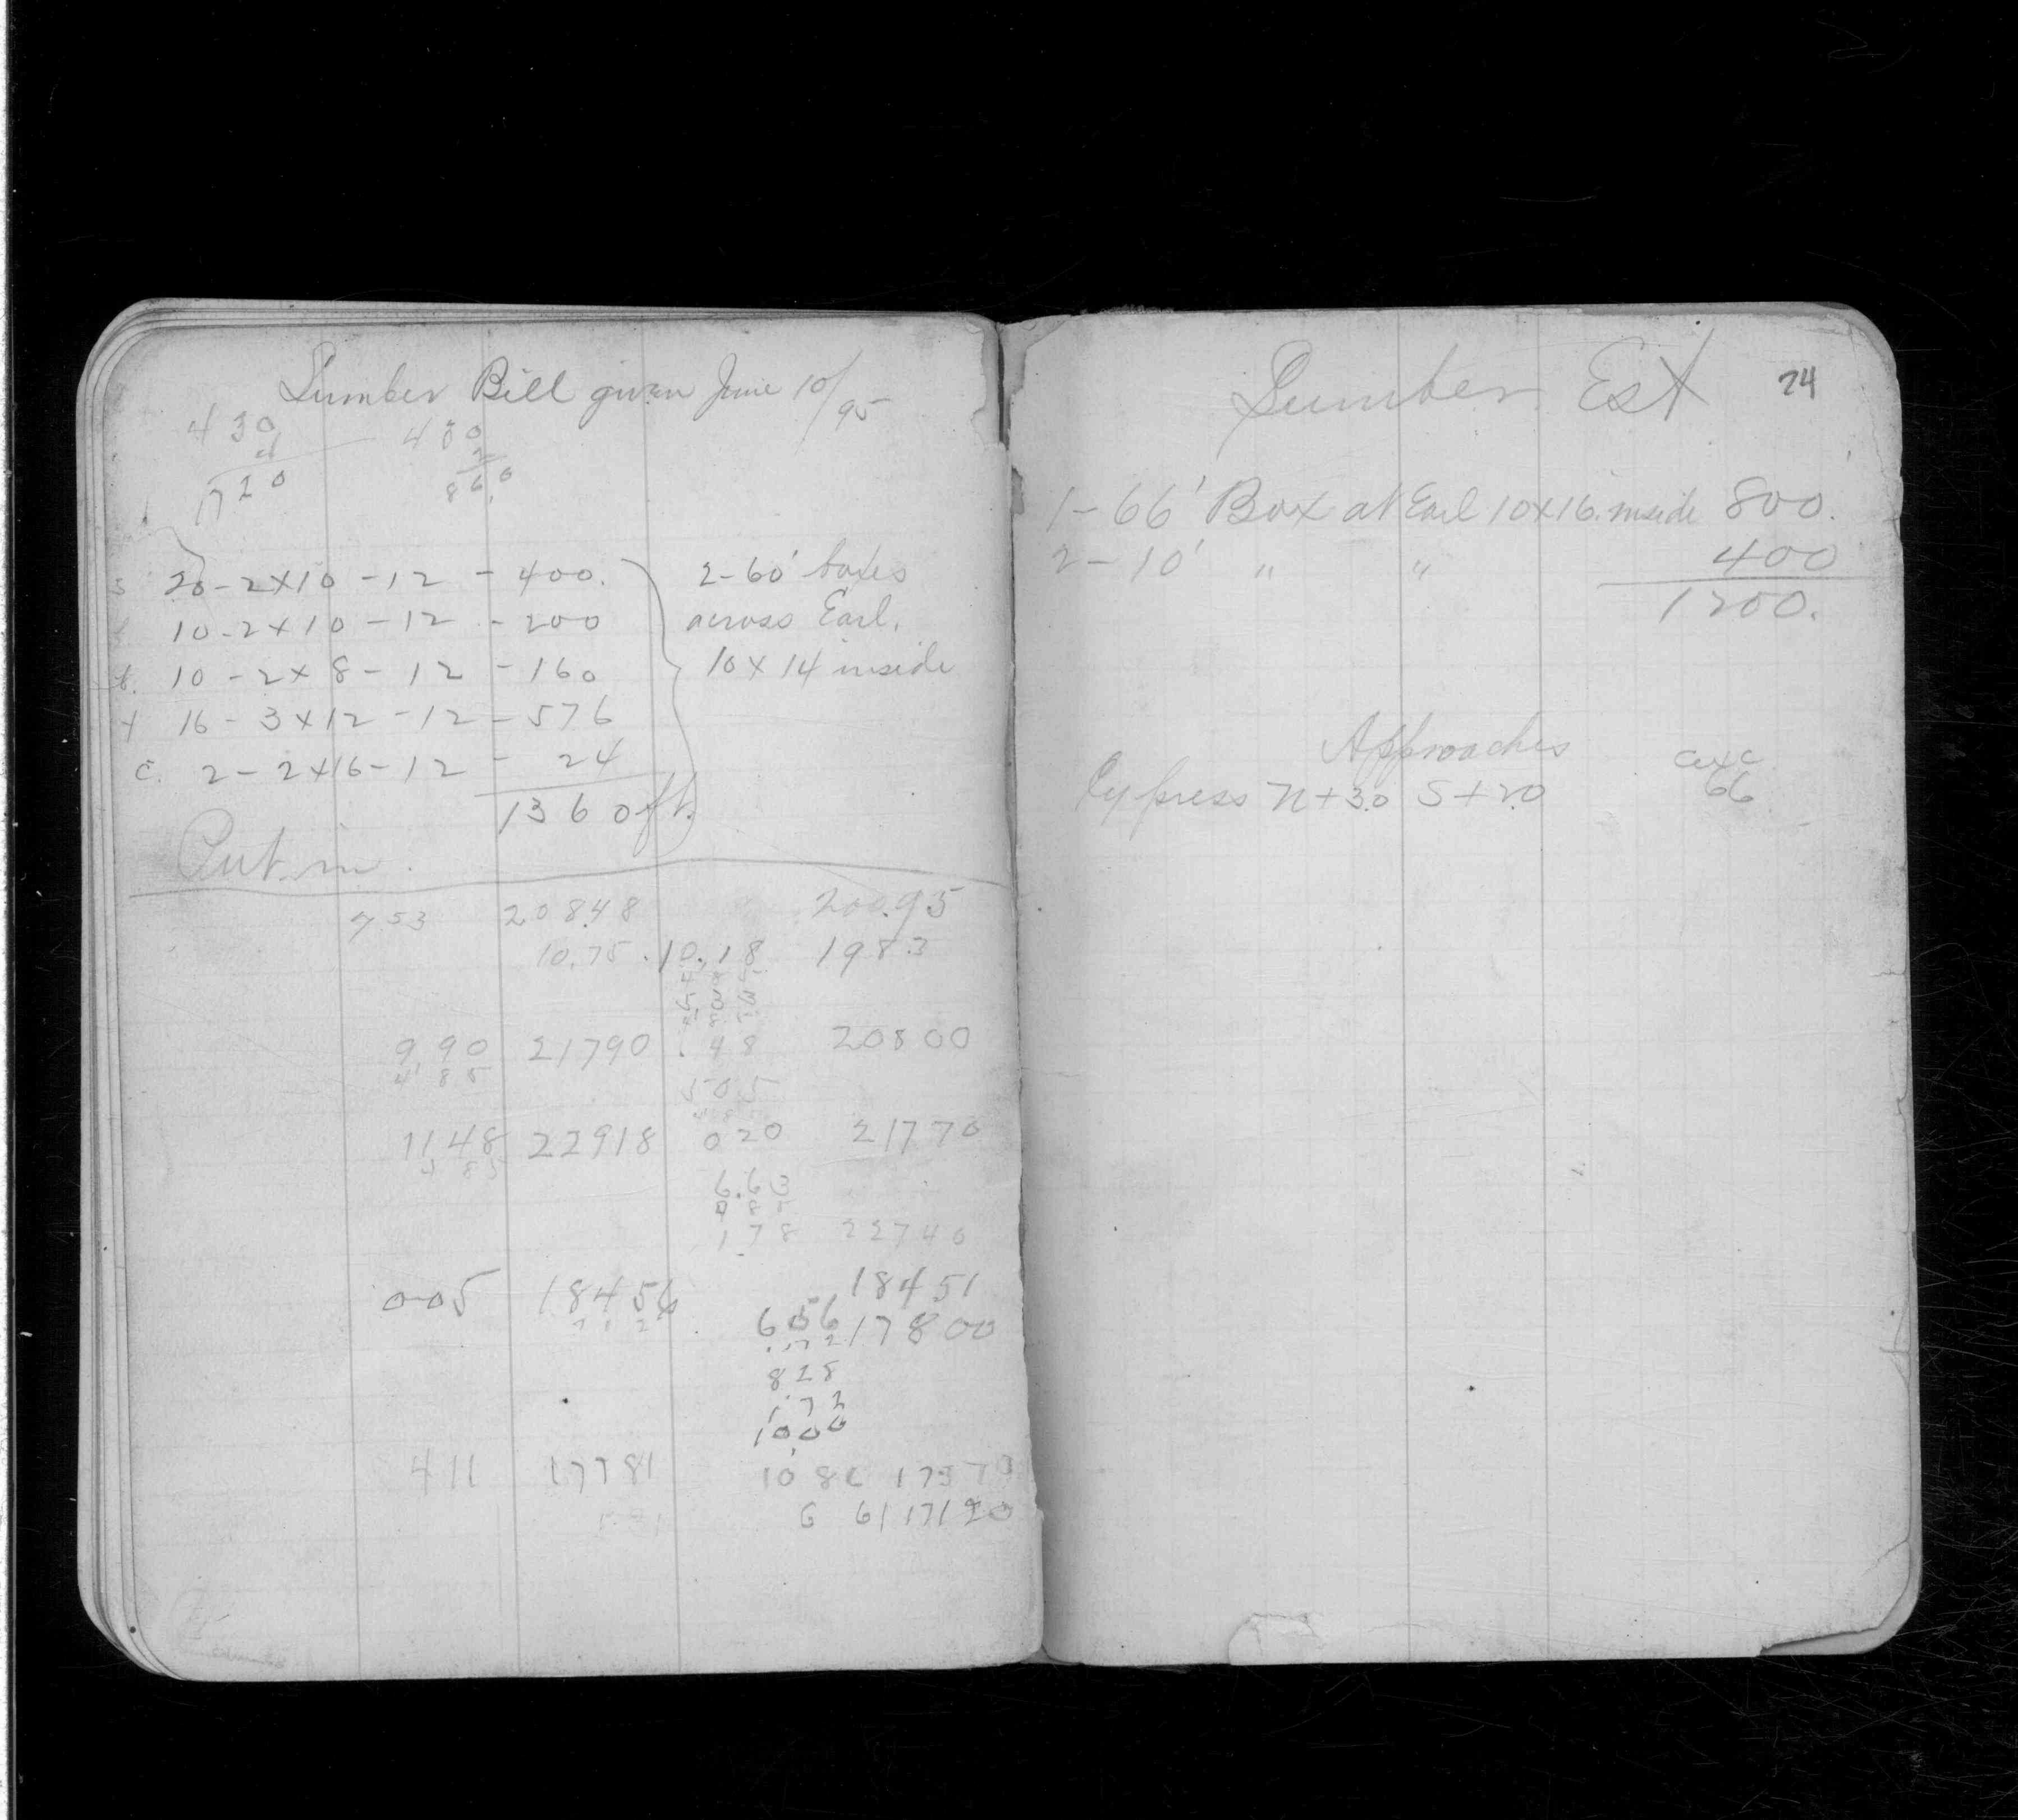 Lumber Bill given June 10/95
430 430
4 2
1720 860
s 20-2x10-12-400.
10-2x10-12-200
b. 10-2x8-12-160
t 16-3x12-12-576
c. 2-2x16-12-24
1360 ft.
2-60' boxes
across Earl.
10x14 inside
Put in.
753 208.48 200.95
10.75 10.18 198.3
990 21790 .48 20800
485
505
1148 22918 020 21770
6.63
178 22740
005 18456 18451
656 17800
172
828
172
1000
411 17781 10 86 17370
6 61 17120
Lumber Est 74
1-66' Box at Earl 10x16 inside 800.
2-10' " " 400
1200.
Approaches
Cypress N+30 S+20 66